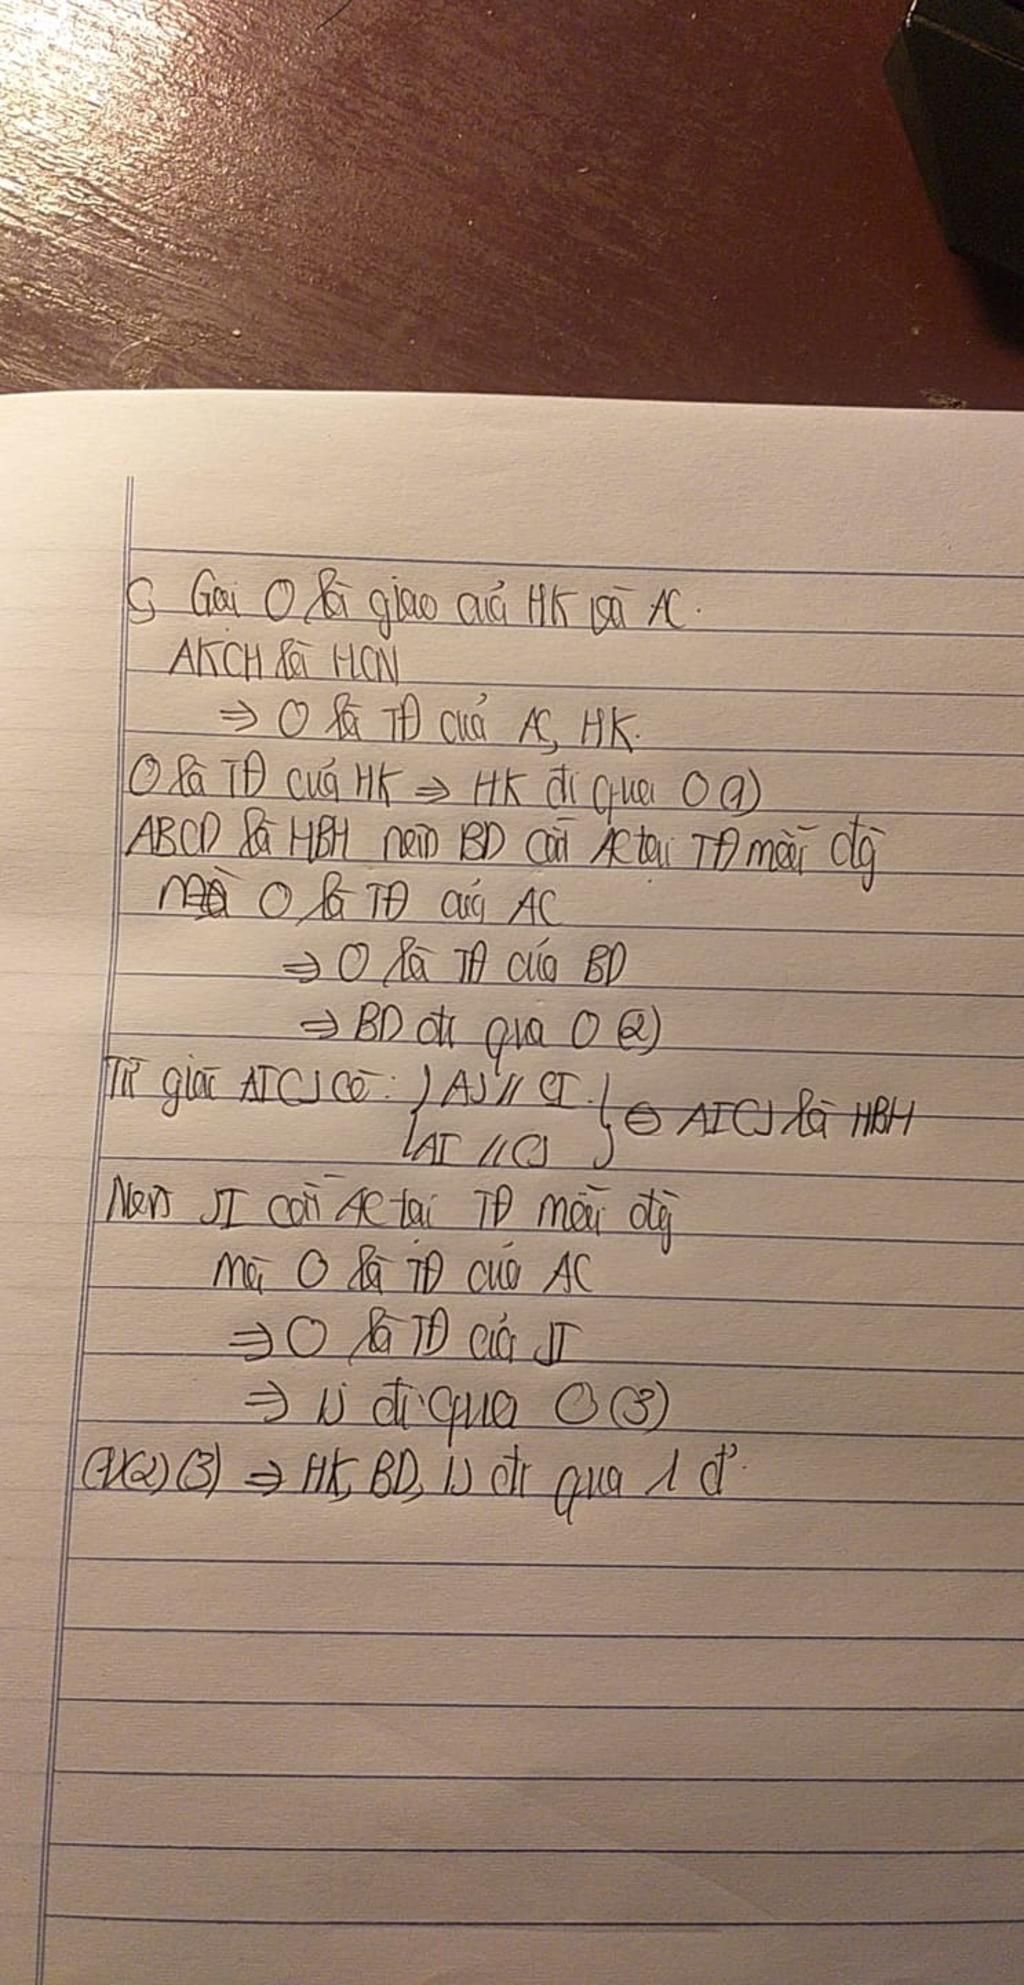 c, Gọi O là giao của HK và AC.
AKCH là HCN
⇒ O là TĐ của AC, HK.
O là TĐ của HK ⇒ HK đi qua O (1)
ABCD là HBH nên BD cắt AC tại TĐ mỗi đg
mà O là TĐ của AC
⇒ O là TĐ của BD
⇒ BD đi qua O (2)
Tứ giác AICJ có: { AJ // CI
AI // CJ } ⇒ AICJ là HBH
Nên JI cắt AC tại TĐ mỗi đg
mà O là TĐ của AC
⇒ O là TĐ của JI
⇒ IJ đi qua O (3)
(1)(2)(3) ⇒ HK, BD, IJ đi qua 1 đ'